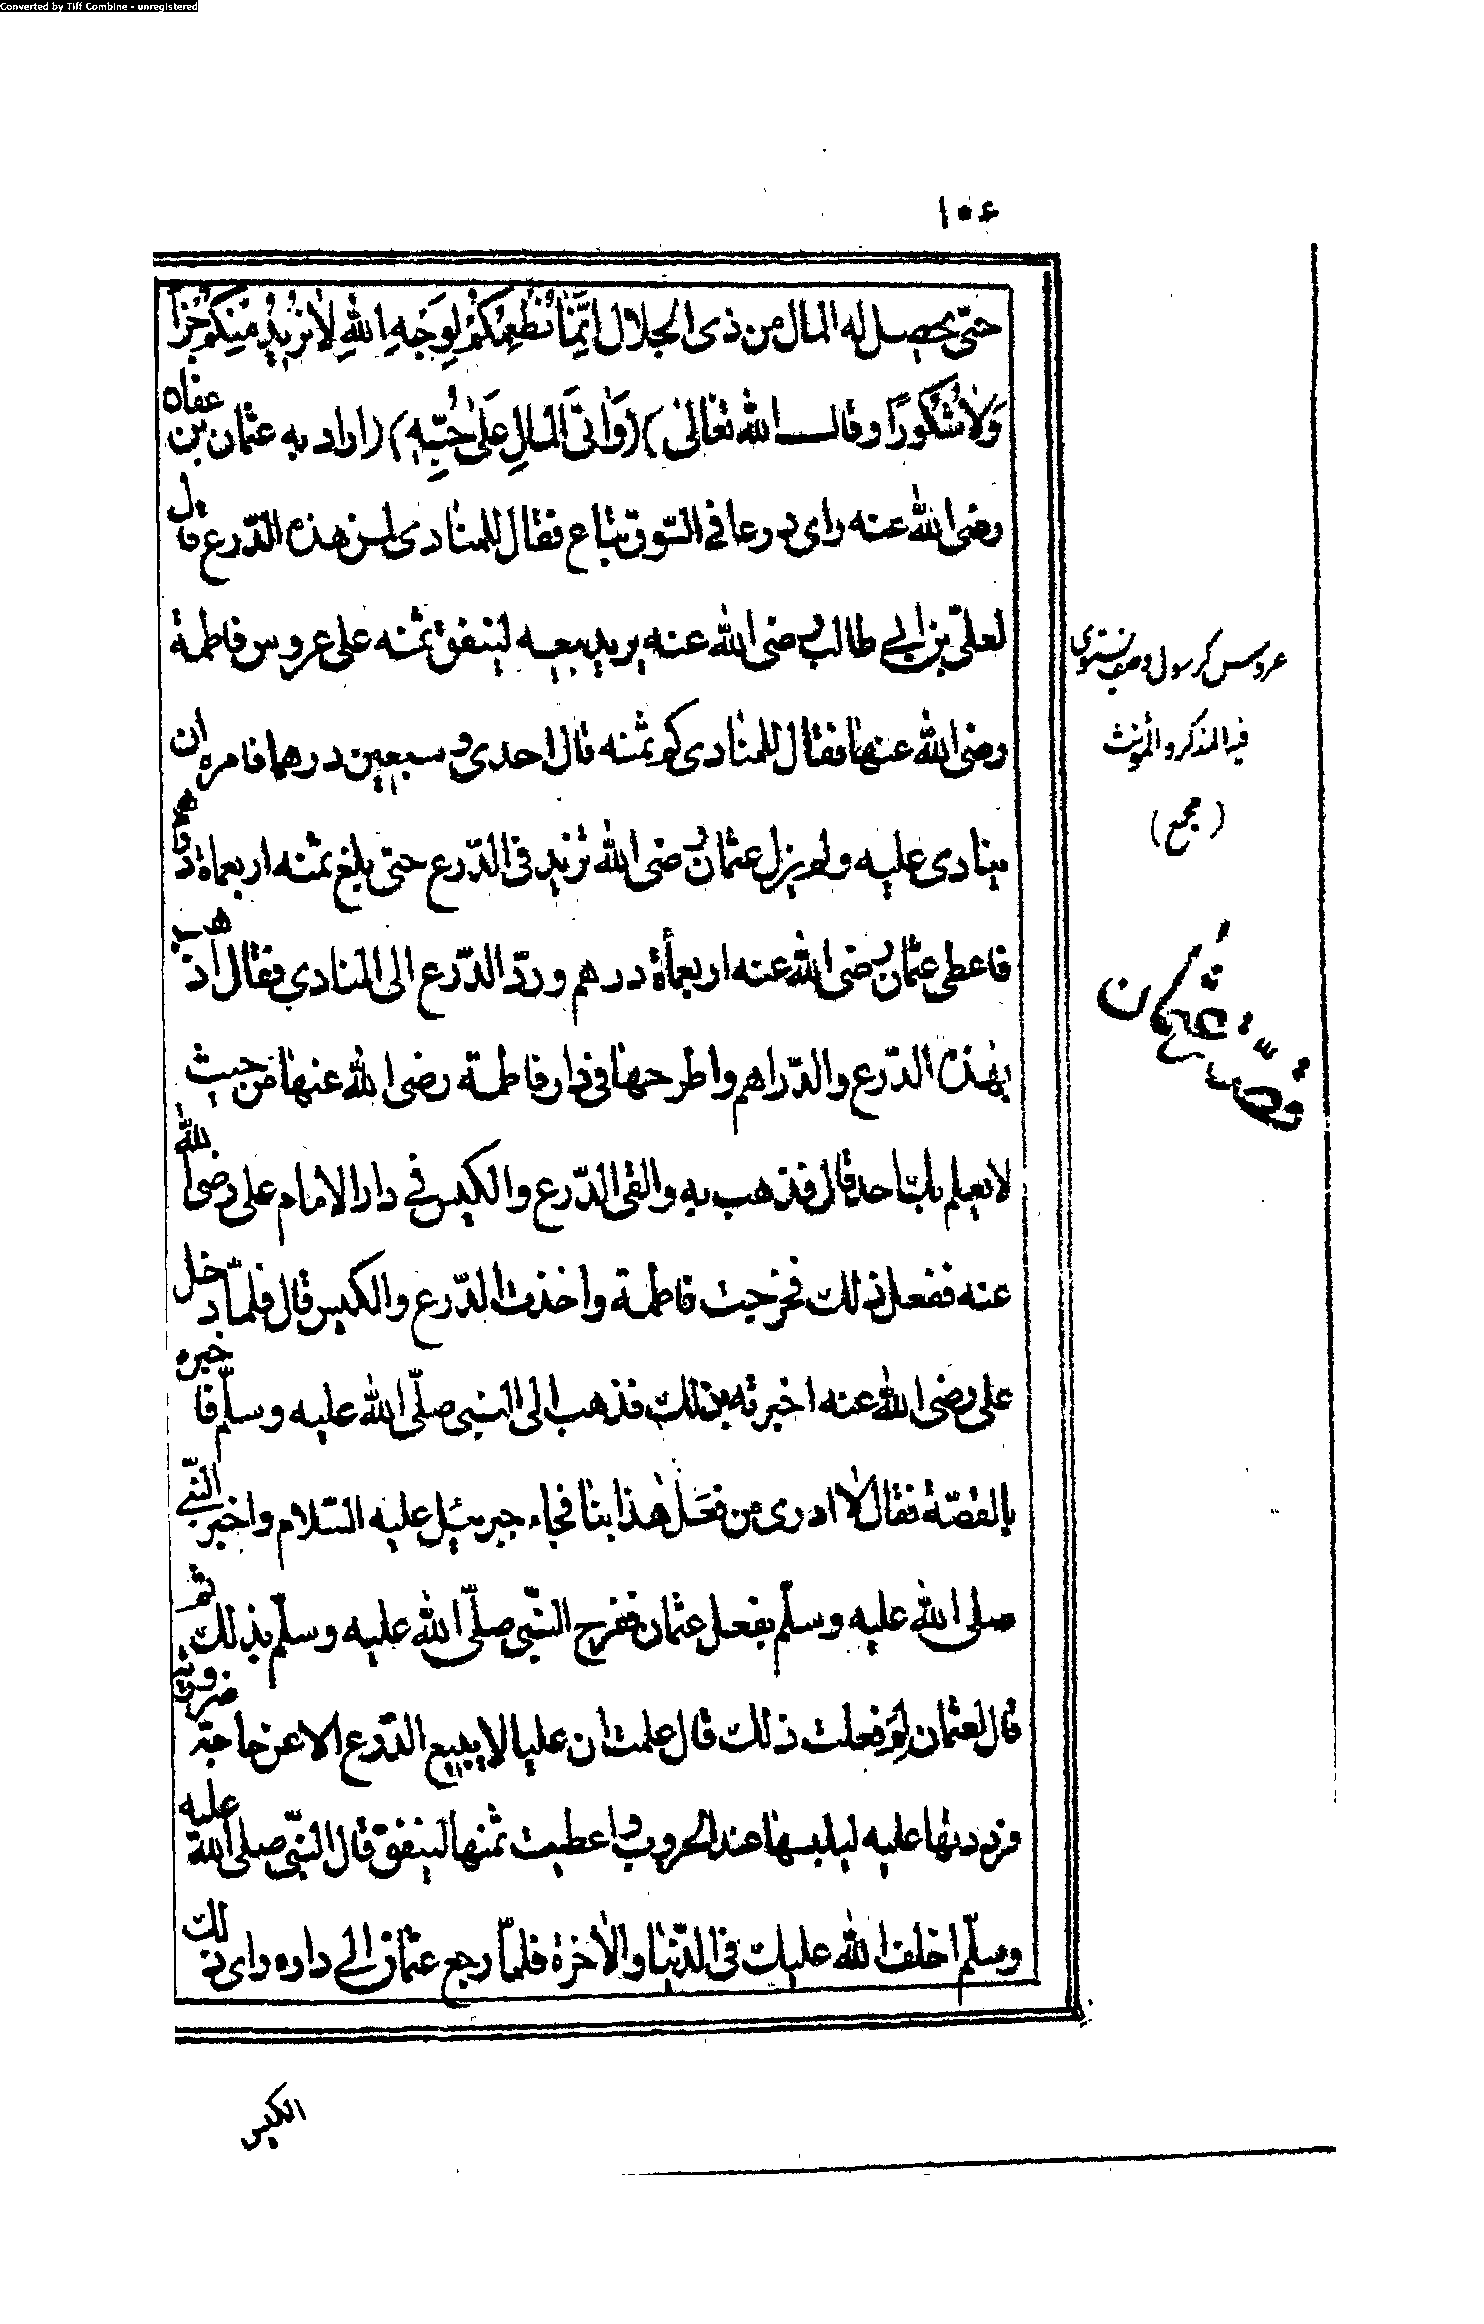 Converted by Tiff Combine - unregistered
١٠٤
حتى يحصل له المال من ذى الجلال اِنَّمَا نُطْعِمُكُمْ لِوَجْهِ اللهِ لَا نُرِيدُ مِنكُمْ جَزَآ
وَلَا شُكُورًا وقال الله تعالى) (وَاٰتَى الْمَالَ عَلىٰ حُبِّهٖ) (اراد به عثمان بن عفان
رضى الله عنه راى درعا فى السّوق يباع فقال للمنادى لمن هذه الدّرع قال
لعلىّ بن ابي طالب رضى الله عنه يريد بيعه لينفق ثمنه على عروس فاطمة
رضى الله عنها فقال للمنادى كم ثمنه قال احدى و سبعين درهما فامره ان
ينادى عليه ولم يزل عثمان رضى الله تزيد فى الدّرع حتى بلغ ثمنه اربعماة درهما
فاعطى عثمان رضى الله عنه اربعمأة درهم وردّ الدّرع الى المنادى فقال اذهب
بهذه الدّرع والدّراهم واطرحها فى دار فاطمة رضى الله عنها من حيث
لا يعلم بك احد قال فذهب به والقى الدّرع والكيس في دار الامام على رضى الله
عنه ففعل ذلك فخرجت فاطمة واخذت الدّرع والكيس قال فلمّا دخل
على رضى الله عنه اخبرته بذلك فذهب الى النبى صلّى الله عليه وسلّم فاخبره
بالقصّة فقال لا ادرى من فعل هذا بنا فجاء جبرئيل عليه السّلام واخبر النّبي
صلى الله عليه وسلّم بفعل عثمان ففرح النّبى صلّى الله عليه وسلّم بذلك ثم
قال لعثمان لِمَ فعلت ذلك قال علمت ان عليا لا يبيع الدّرع الا عن حاجة ضرورية
فرددتها عليه ليلبسها عند الحروب واعطيت ثمنها لينفق قال النّبى صلى الله عليه
وسلّم اخلف الله عليك فى الدّنيا والاٰخرة فلمّا رجع عثمان الي داره راى ذلك
الكيس
عروس كرسول وصف يستوى
فيه المذكر والمؤنث
(مجمع)
قصّة عثمان رض